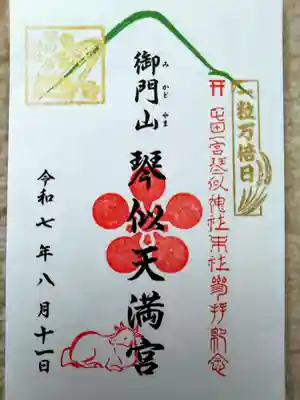 一粒万倍日
屯田一宮琴似神社末社参拝紀念
御門山
みかどやま
琴似天満宮
令和七年八月十一日